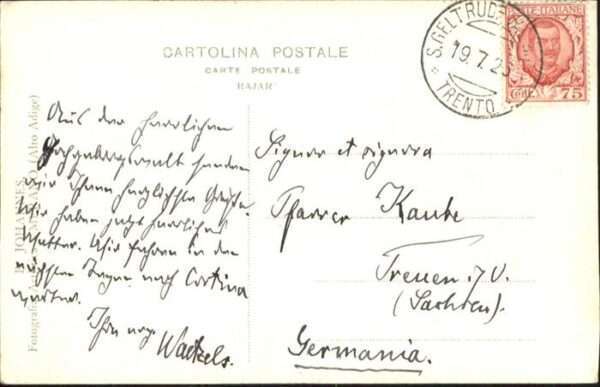 CARTOLINA POSTALE
CARTE POSTALE
S. GELTRUDA
19.7.2
TRENTO
POSTE ITALIANE
Cent. 75
Fotografo JOHANNES, (Alto Adige)
Aus der herrlichen
Hochgebirgswelt senden
wir Ihnen herzlichste Grüße.
Wir haben jetzt herrliches
Wetter. Wir fahren in den
nächsten Tagen nach Cortina
weiter.
Ihre
Signor et signora
Pfarrer Kaube
Treuen i/V.
(Sachsen).
Germania.